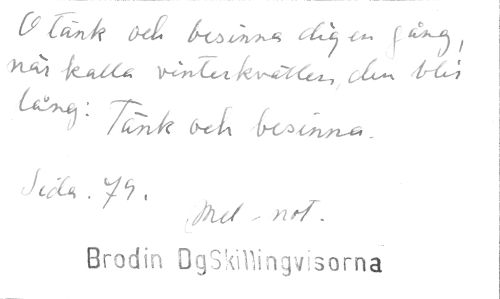 O tänk och besinna dig en gång,
när kalla vinterkvällen, den blir
lång: Tänk och besinna.
Sida. 79.
Mel - not.
Brodin DgSkillingvisorna